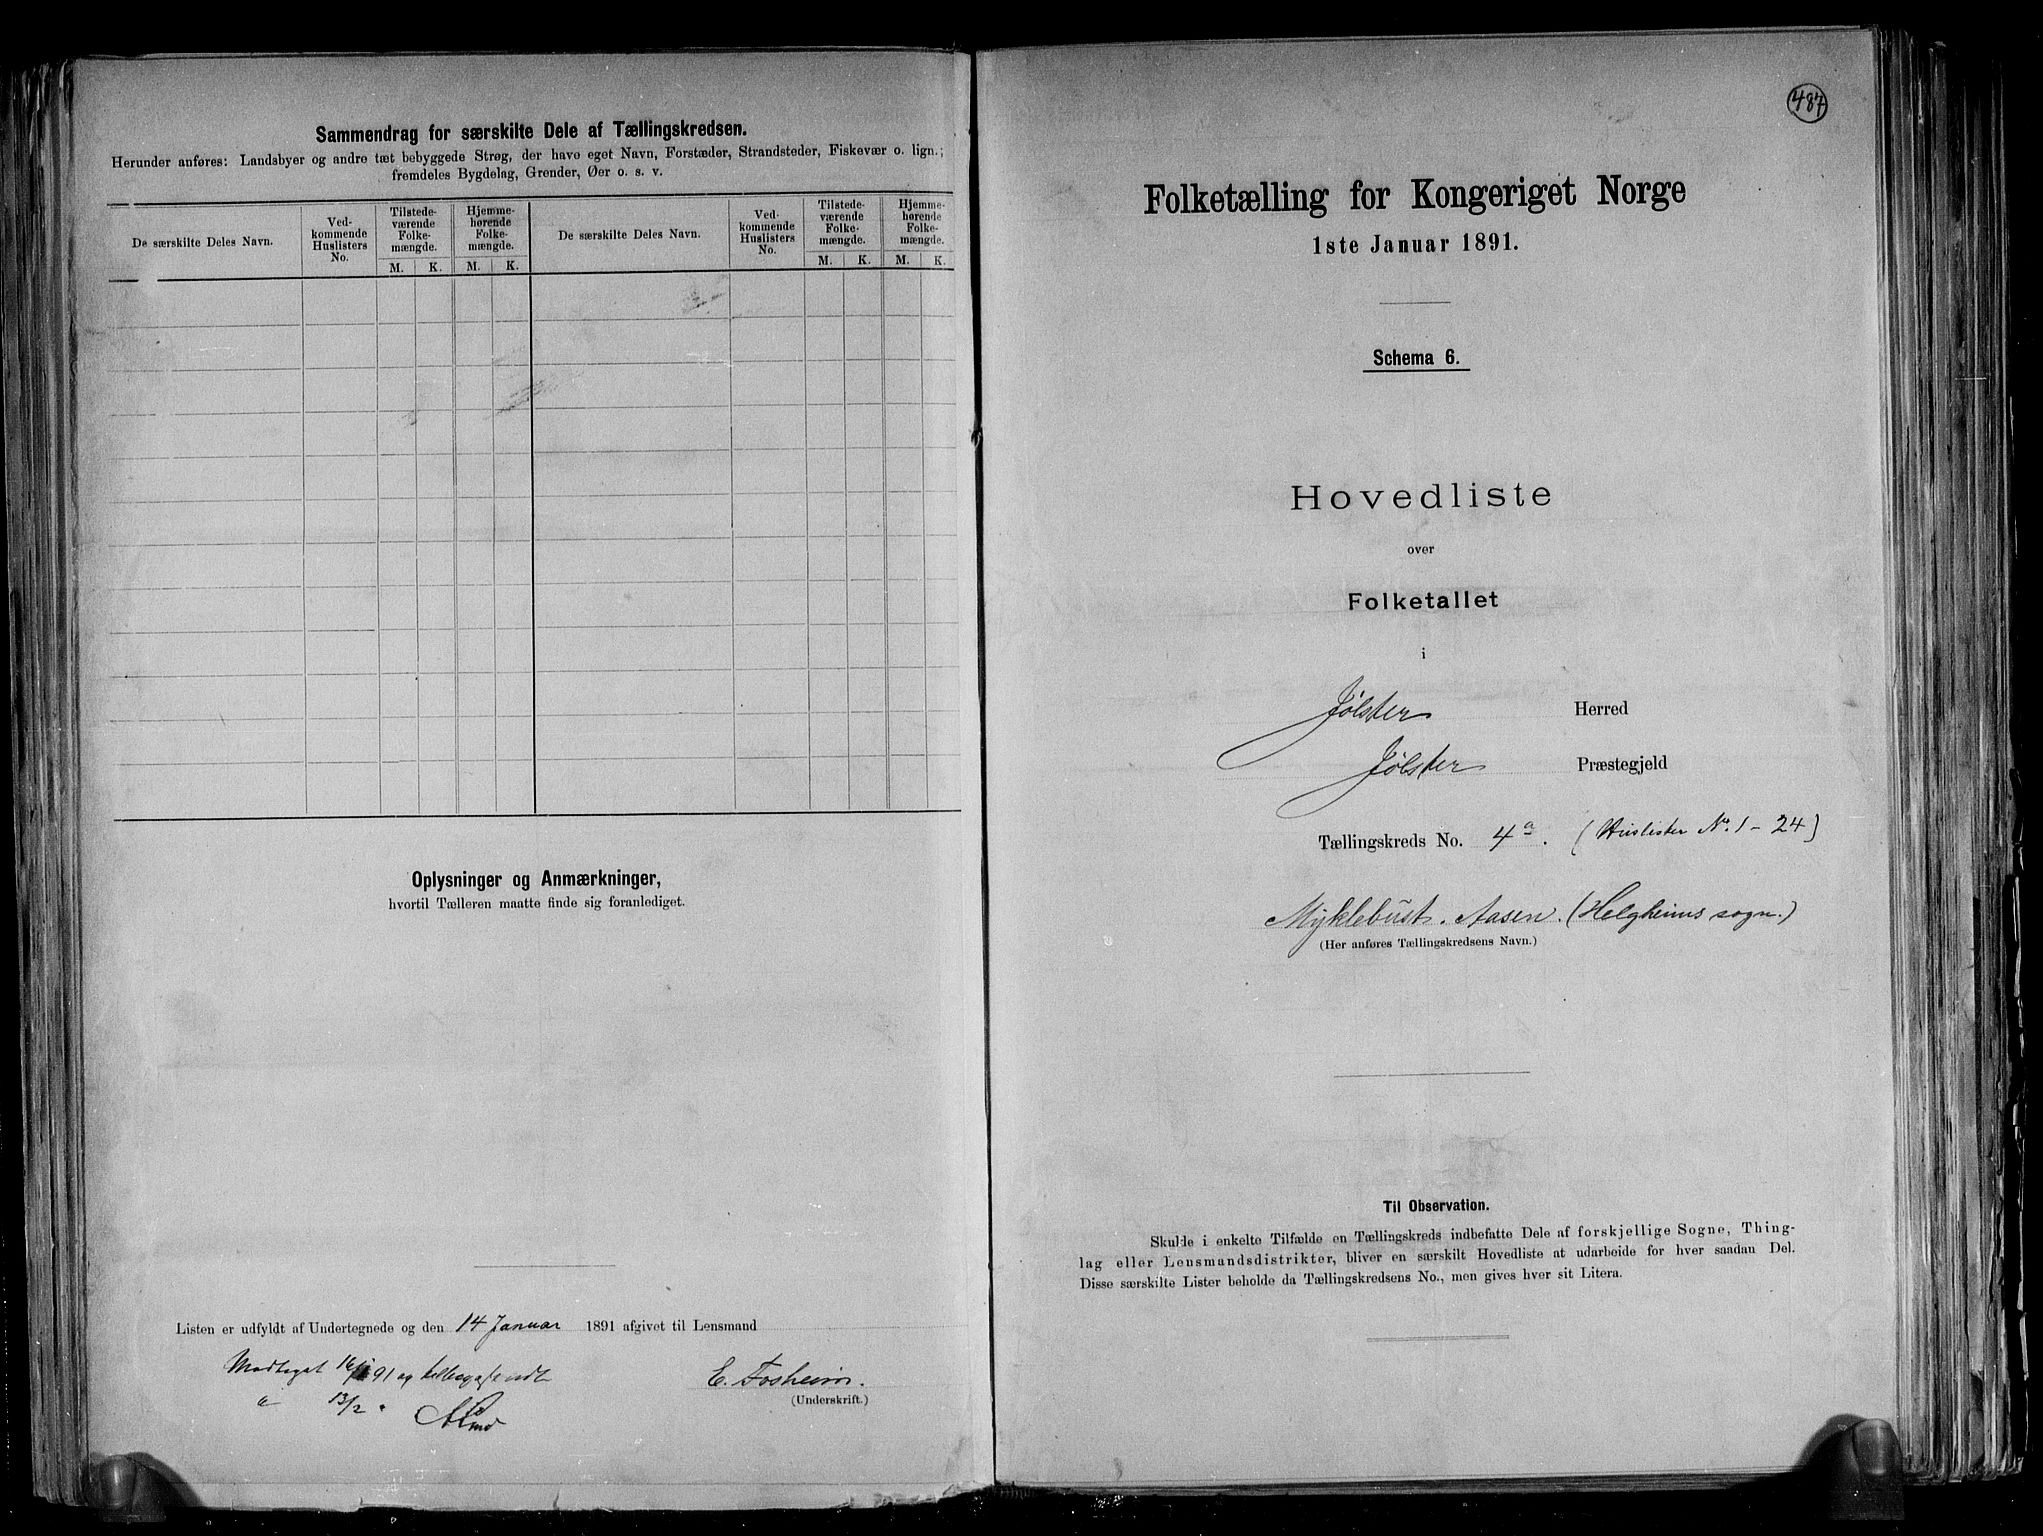 Sammendrag for særskilte Dele af Tællingskredsen.
Herunder anføres: Landsbyer og andre tæt bebyggede Strøg, der have eget Navn, Forstæder, Strandsteder, Fiskevær o. lign.;
fremdeles Bygdelag, Grender, Øer o. s. v.
De særskilte Deles Navn.
Ved-
kommende
Huslisters
No.
Tilstede-
værende
Folke-
mængde.
Hjemme-
hørende
Folke-
mængde.
M. K. M. K.
De særskilte Deles Navn.
Ved-
kommende
Huslisters
No.
Tilstede-
værende
Folke-
mængde.
Hjemme-
hørende
Folke-
mængde.
M. K. M. K.
Oplysninger og Anmærkninger,
hvortil Tælleren maatte finde sig foranlediget.
Listen er udfyldt af Undertegnede og den 14 Januar 1891 afgivet til Lensmand
Modtaget 16/1 91 og
13/2
E. Fosheim.
(Underskrift.)
487
Folketælling for Kongeriget Norge
1ste Januar 1891.
Schema 6.
Hovedliste
over
Folketallet
i
Jølster Herred
Jølster Præstegjeld
Tællingskreds No. 4a. (Huslister No. 1 - 24)
Myklebust. Aasen. (Helgheims sogn.)
(Her anføres Tællingskredsens Navn.)
Til Observation.
Skulde i enkelte Tilfælde en Tællingskreds indbefatte Dele af forskjellige Sogne, Thing-
lag eller Lensmandsdistrikter, bliver en særskilt Hovedliste at udarbeide for hver saadan Del.
Disse særskilte Lister beholde da Tællingskredsens No., men gives hver sit Litera.